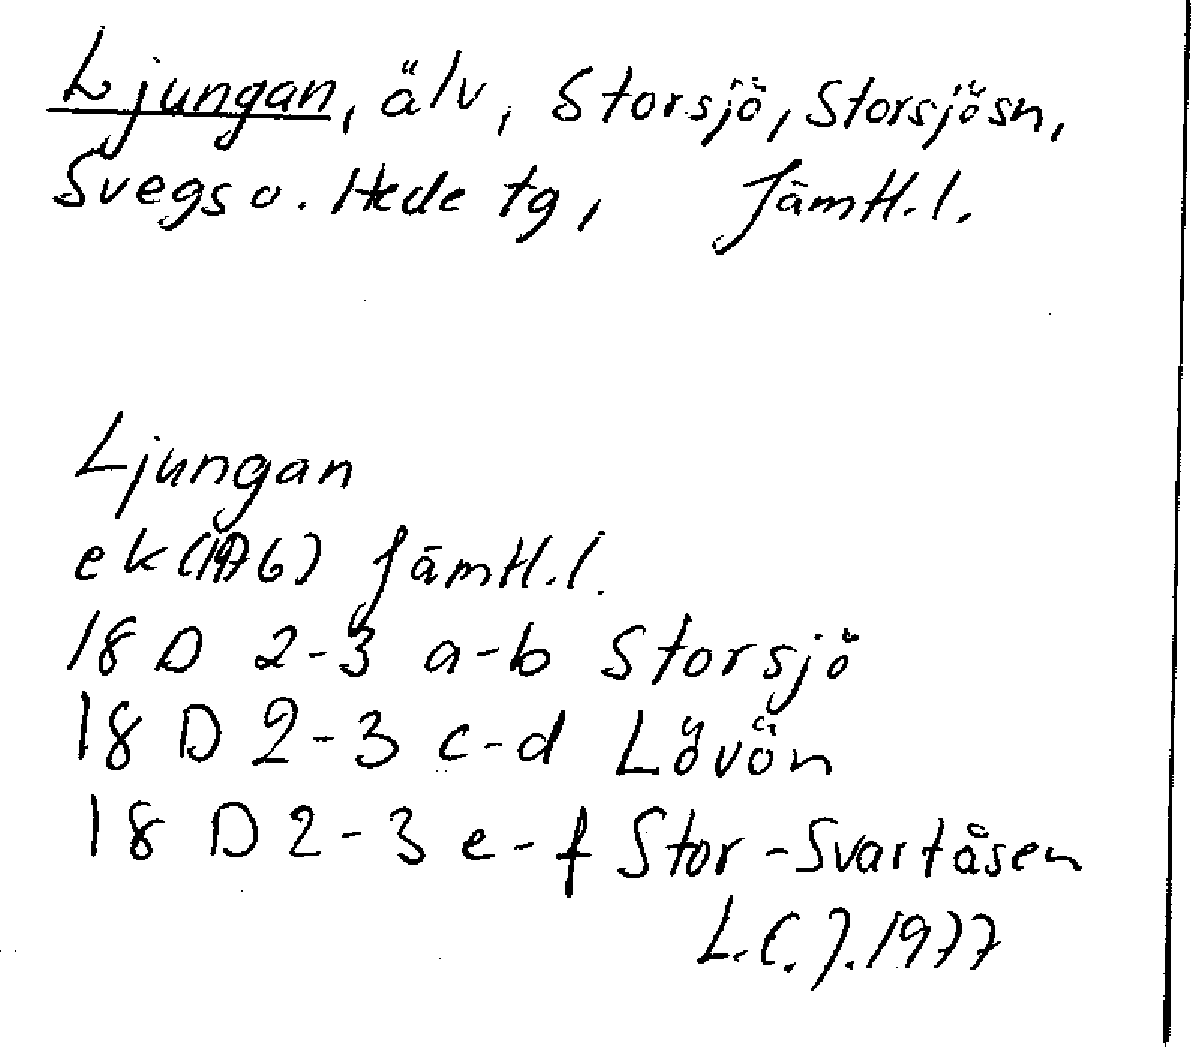 Ljungan, älv, Storsjö, Storsjösn,
Svegs o. Hede tg, Jämtl.l.
Ljungan
ek (1976) Jämtl.l.
18 D 2-3 a-b Storsjö
18 D 2-3 c-d Lövön
18 D 2-3 e-f Stor-Svartåsen
L.C.J. 1977